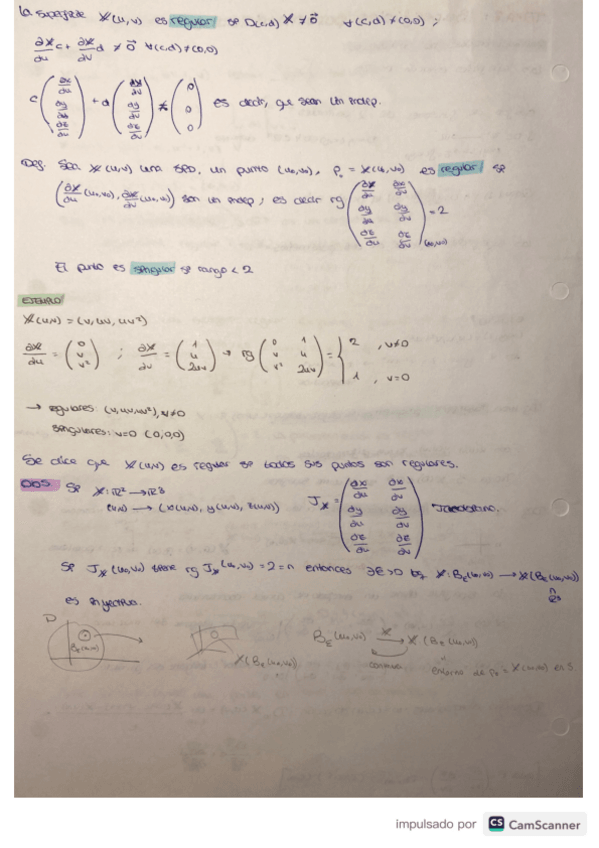 La superficie X(u,v) es regular si D(c,d) X ≠ 0⃗ ∀(c,d) ≠ (0,0) ;
∂X/∂u c + ∂X/∂v d ≠ 0⃗ ∀(c,d) ≠ (0,0)
c (∂x/∂u ∂y/∂u ∂z/∂u) + d (∂x/∂v ∂y/∂v ∂z/∂v) ≠ (0 0 0) es decir, que sean lin indep.
Def. Sea X(u,v) una SPD, un punto (u₀,v₀), P₀ = X(u₀,v₀) es regular si
(∂X/∂u (u₀,v₀), ∂X/∂v (u₀,v₀)) son lin indep ; es decir rg (∂x/∂u ∂x/∂v ∂y/∂u ∂y/∂v ∂z/∂u ∂z/∂v)(u₀,v₀) = 2
El punto es singular si rango < 2
EJEMPLO
X(u,v) = (v, uv, uv²)
∂X/∂u = (0 v v²) ; ∂X/∂v = (1 u 2uv) → rg (0 1 v u v² 2uv) = { 2 , v≠0 1 , v=0
→ regulares (v, uv, uv²), v≠0
singulares: v=0 (0,0,0)
Se dice que X(u,v) es regular si todos sus puntos son regulares.
OBS. Si X: ℝ² → ℝ³
(u,v) → (x(u,v), y(u,v), z(u,v)) J_X = (∂x/∂u ∂x/∂v ∂y/∂u ∂y/∂v ∂z/∂u ∂z/∂v) Jacobiano.
Si J_X (u₀,v₀) tiene rg J_X (u₀,v₀) = 2 = n entonces ∃ε>0 tq X: B_ε(u₀,v₀) → X(B_ε(u₀,v₀))
es inyectiva.
D
B_ε(u₀,v₀) X(B_ε(u₀,v₀)) B_ε(u₀,v₀) X→ X(B_ε(u₀,v₀))
continua entorno de P₀ = X(u₀,v₀) en S
impulsado por CS CamScanner